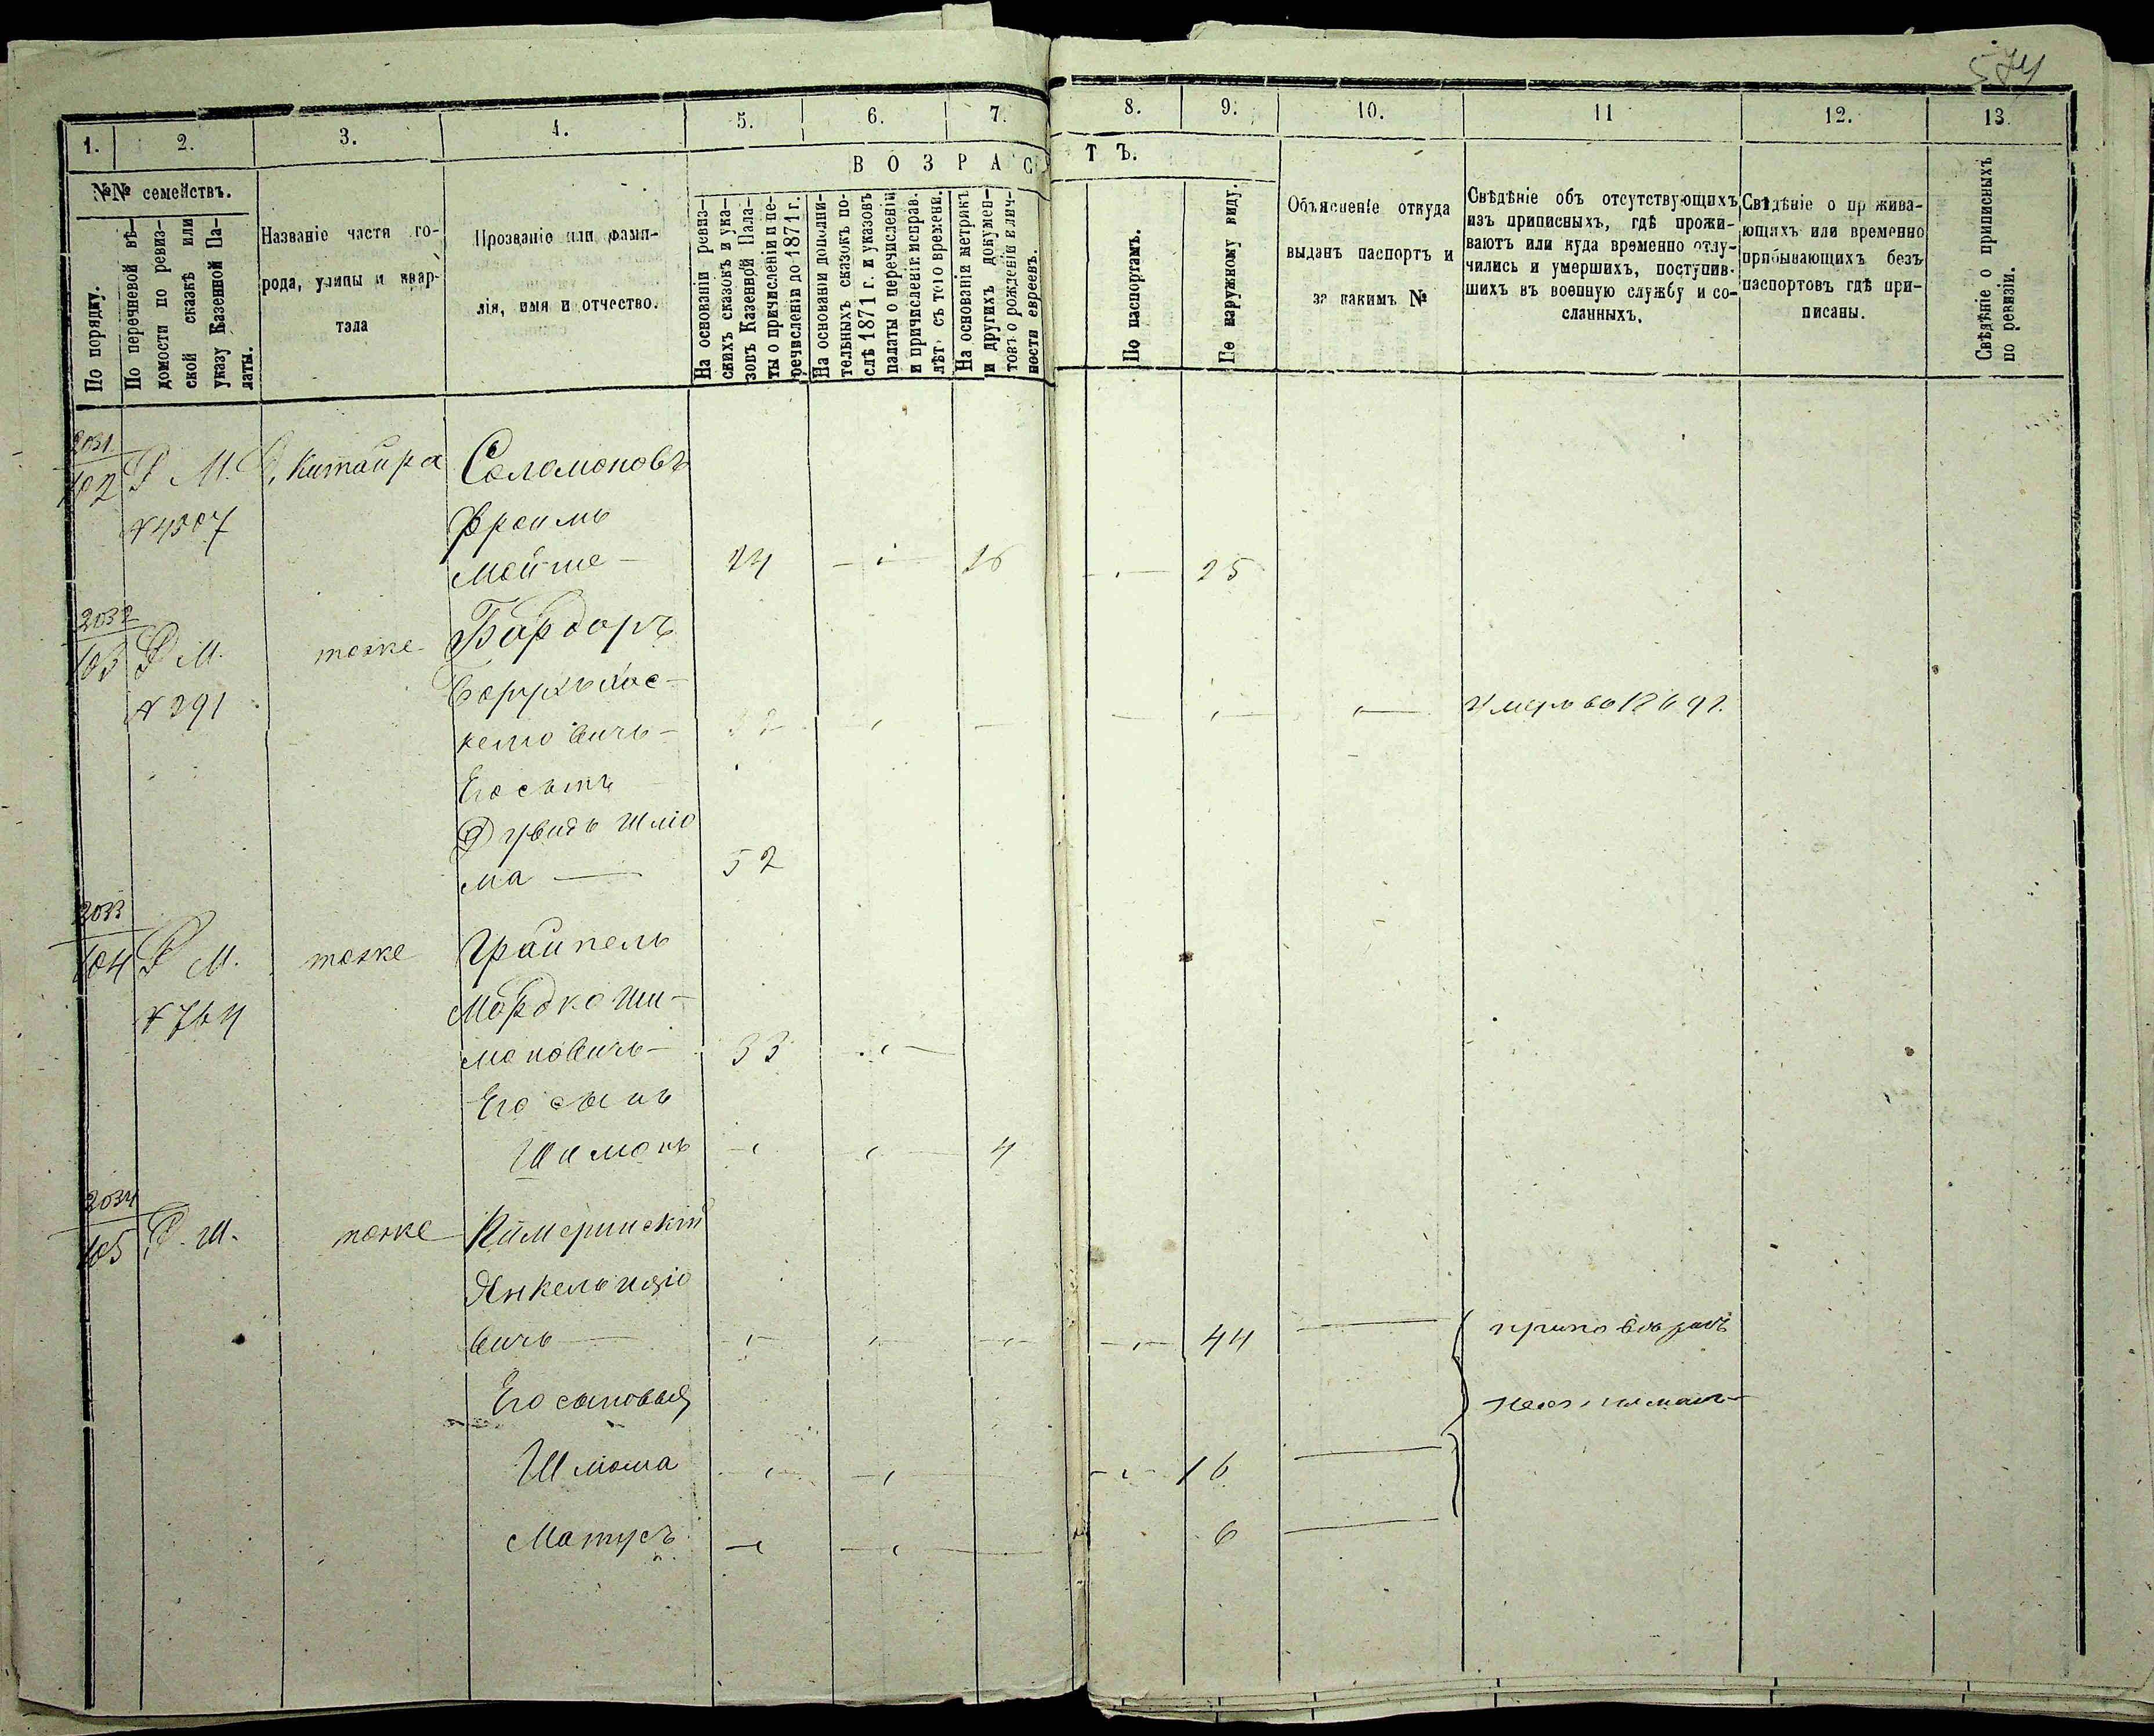 574
1.
2.
3.
4.
5.
6.
7.
8.
9.
10.
11
12.
13.
№№ семействъ.
По порядку.
По перечневой вѣ-
домости по ревиз-
ской сказкѣ или
указу Казенной Па-
латы.
Названіе части го-
рода, улицы и квар-
тала
Прозваніе или фами-
лія, имя и отчество.
ВОЗРАСТЪ.
На основаніи ревиз-
скихъ сказокъ и ука-
зовъ Казенной Пала-
ты о причисленіи и пе-
речисленіи до 1871 г.
На основаніи дополни-
тельныхъ сказокъ по-
слѣ 1871 г. и указовъ
палаты о перечисленіи
и причисленіи: исправ.
лѣт. съ того времени.
На основаніи метрикъ
и другихъ докумен-
товъ о рожденіи и лич-
ности евреевъ.
По паспортамъ.
По наружному виду.
Объясненіе откуда
выданъ паспортъ и
за какимъ №
Свѣдѣніе объ отсутствующихъ
изъ приписныхъ, гдѣ прожи-
ваютъ или куда временно отлу-
чились и умершихъ, поступив-
шихъ въ военную службу и со-
сланныхъ.
Свѣдѣніе о прожива-
ющихъ или временно
прибывающихъ безъ
паспортовъ гдѣ при-
писаны.
Свѣдѣніе о приписныхъ
по ревизіи.
2031
102 Р М. Китайка Соломоновъ
Фроимъ
Мойше 24 26 25
2032
103 Р М. тоже Бардоръ
№ 391 Борухъ Іос-
келіовичъ Умеръ въ 1869 г.
Его сынъ
Дувидъ Шлio
ма 52
2033
104 Р М. тоже Грайпель
№ 764 Мордко Ши-
моновичъ 33
Его сынъ
Шимонъ 4
2034
105 Р. М. тоже Кимеринскій
Янкель Ицко
вичъ 44
Его сыновья
Шлюма 16
Матусъ 6